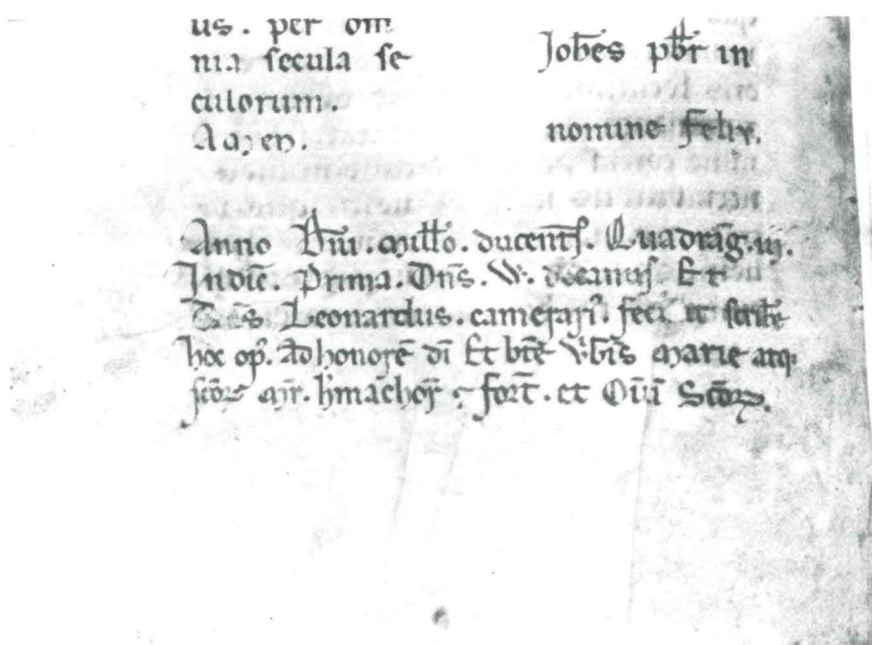 us . per om̄
nia secula se-
culorum .
Amen .
Joh̄es pb̄r in
nomine Felix.
Anno Dn̄i . mill̄o . ducent̄ꝭ . Quadrāg . iij .
Indic̄ . Prima . Dn̄s . W . decanus . Et
Dn̄s Leonardus . camerariꝰ . feci et scrib̄e
hoc opꝰ . ad honorē dī Et bt̄e v̄bīs marie atq;
scōꝝ m̄r . h̄mac̄hoꝝ ⁊ fort̄ . et Oīū Scōꝝ .